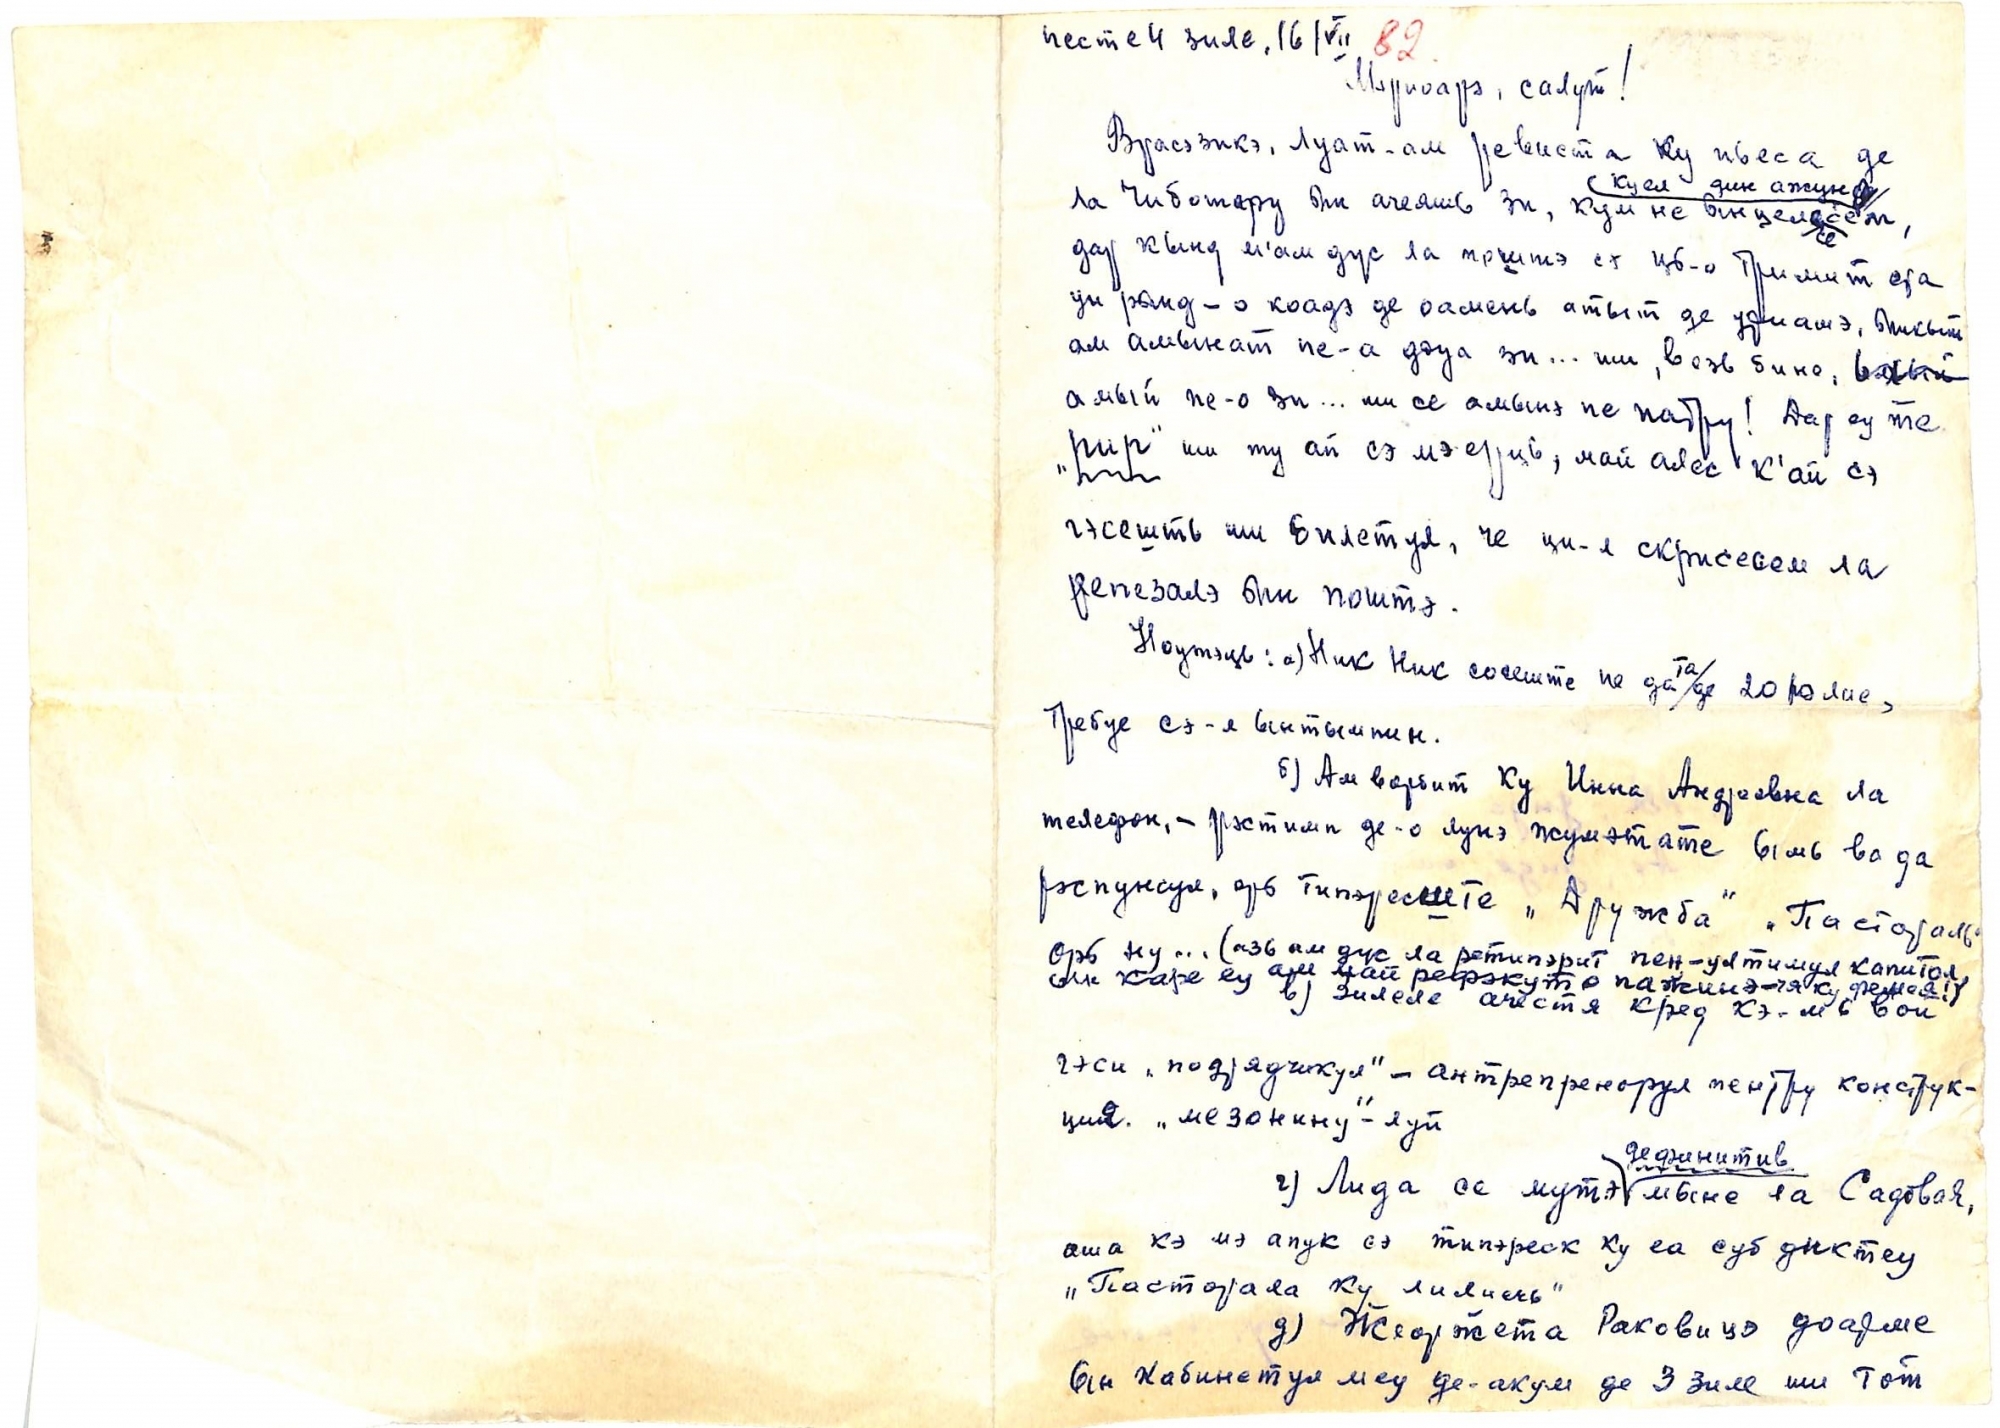 песте 4 зиле, 16/VII 82.
Мэриоарэ, салут!
Врасэзикэ, луат-ам ревиста ку пьеса де
(куел дин ажун)
ла Чиботару ын ачеяшь зи, кум не ынцелесесем,
дар кынд м'ам дус ла поштэ сэ ць-о тримит ера
ун рынд-о коадэ де оамень атыт де уриашэ, ынкыт
ам амынат пе-а доуа зи... ши, везь бине,
амый пе-о зи... ми се амынэ пе патру! Дар еу те
„рир" ши ту ай сэ мэ ерць, май алес к'ай сэ
гэсешть ши билетул, че ци-л скрисесем ла
репезалэ ын поштэ.
Ноутэць: а) Ник Ник сосеште пе дата де 20 юлие,
требуе сэ-л ынтымпин.
б) Ам ворбит ку Инна Андреевна ла
телефон, – рэстимп де-о лунэ жумэтате ымь ва да
рэспунсул, орь типэреште „Дружба" „Пастораль"
орь ну... (азь ам дус ла ретипэрит пен-ултимул капитол,
ын каре еу ам май рефэкут о пажинэ-чя ку фемея!)
в) Зилеле ачестя кред кэ-мь вой
гэси „подрядчикул" – антрепренорул пентру конструк-
ция „мезонину"-луй
дефинитив
г) Лида се мутэ мыне ла Садовая,
аша кэ мэ апук сэ типэреск ку еа суб диктеу
„Пасторала ку лилиечь"
д) Жеоржета Раковицэ доарме
ын кабинетул меу де-акум де 3 зиле ши тот